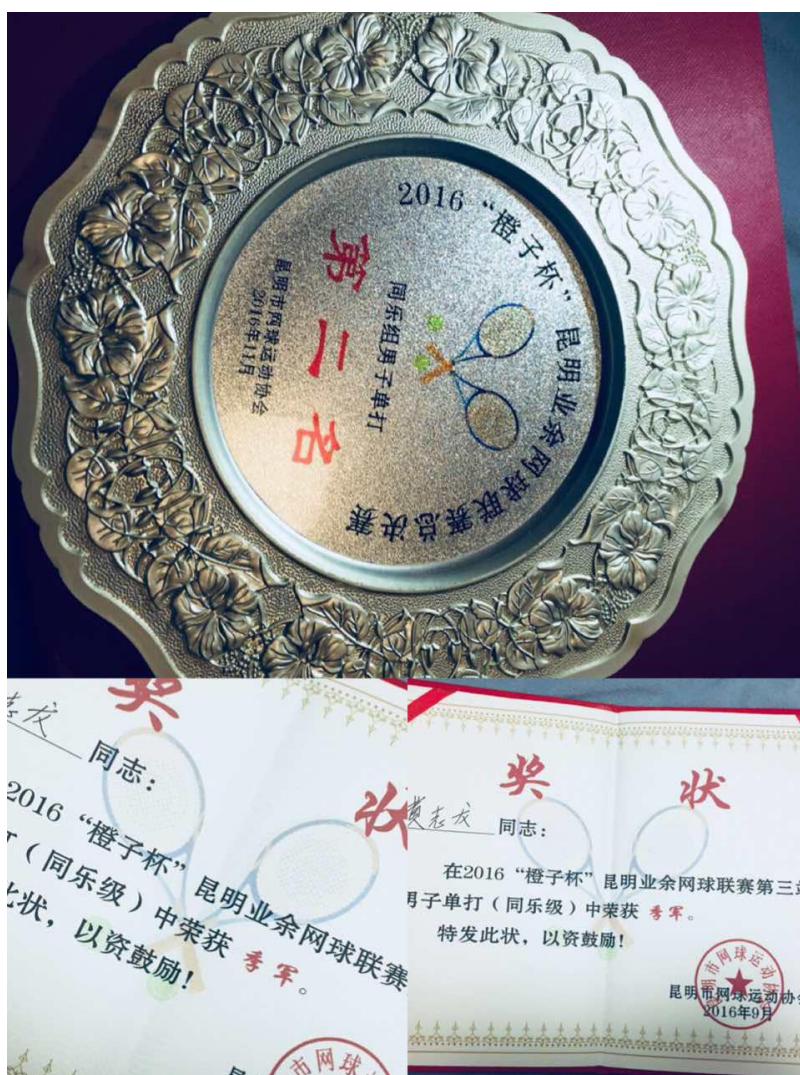 2016 “橙子杯” 昆明业余网球联赛总决赛
同乐组男子单打
第二名
昆明市网球运动协会
2016年11月
奖 状
志龙 同志：
2016 “橙子杯” 昆明业余网球联赛
打（同乐级）中荣获 季军。
此状，以资鼓励！
市网球
奖 状
黄志龙 同志：
在2016 “橙子杯” 昆明业余网球联赛第三站
男子单打（同乐级）中荣获 季军。
特发此状，以资鼓励！
昆明市网球运动协会
昆明市网球运动协会
2016年9月